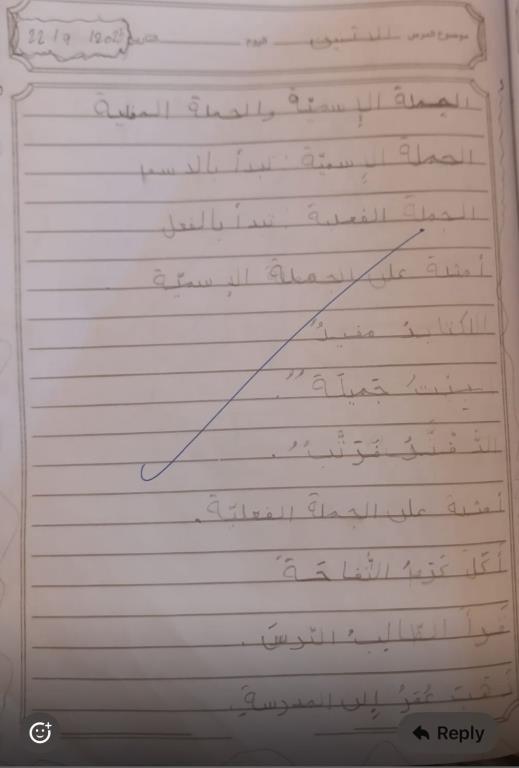 موضوع الدرس اليوم 22 / 9 / 2025
الجملة الإسميّة والجملة الفعلية
الجملة الإسميّة : تبدأ بالاسم
الجملة الفعلية : تبدأ بالفعل
أمثلة على الجملة الإسميّة .
الكتابُ مفيدٌ
بِنتُ جَميلَةٌ .
أمثلة على الجملة الفعليّة .
أَكَلَ التُفاحَةَ
قَرأَ الطّالِبُ الدّرسَ .
ذَهَبَ عُمَرُ إِلى المدرسةِ .
Reply